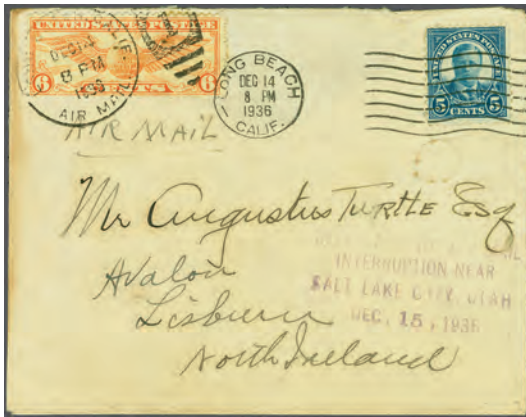 UNITED STATES POSTAGE
6 CENTS 6
CALIF.
8 PM
AIR MAIL
LONG BEACH
DEC 14
8 PM
1936
CALIF.
UNITED STATES POSTAGE
5 CENTS 5
AIR MAIL
Mr Augustus TURTLE Esq
Avalon
Lisburn
North Ireland
INTERRUPTION NEAR
SALT LAKE CITY, UTAH
DEC. 15, 1936